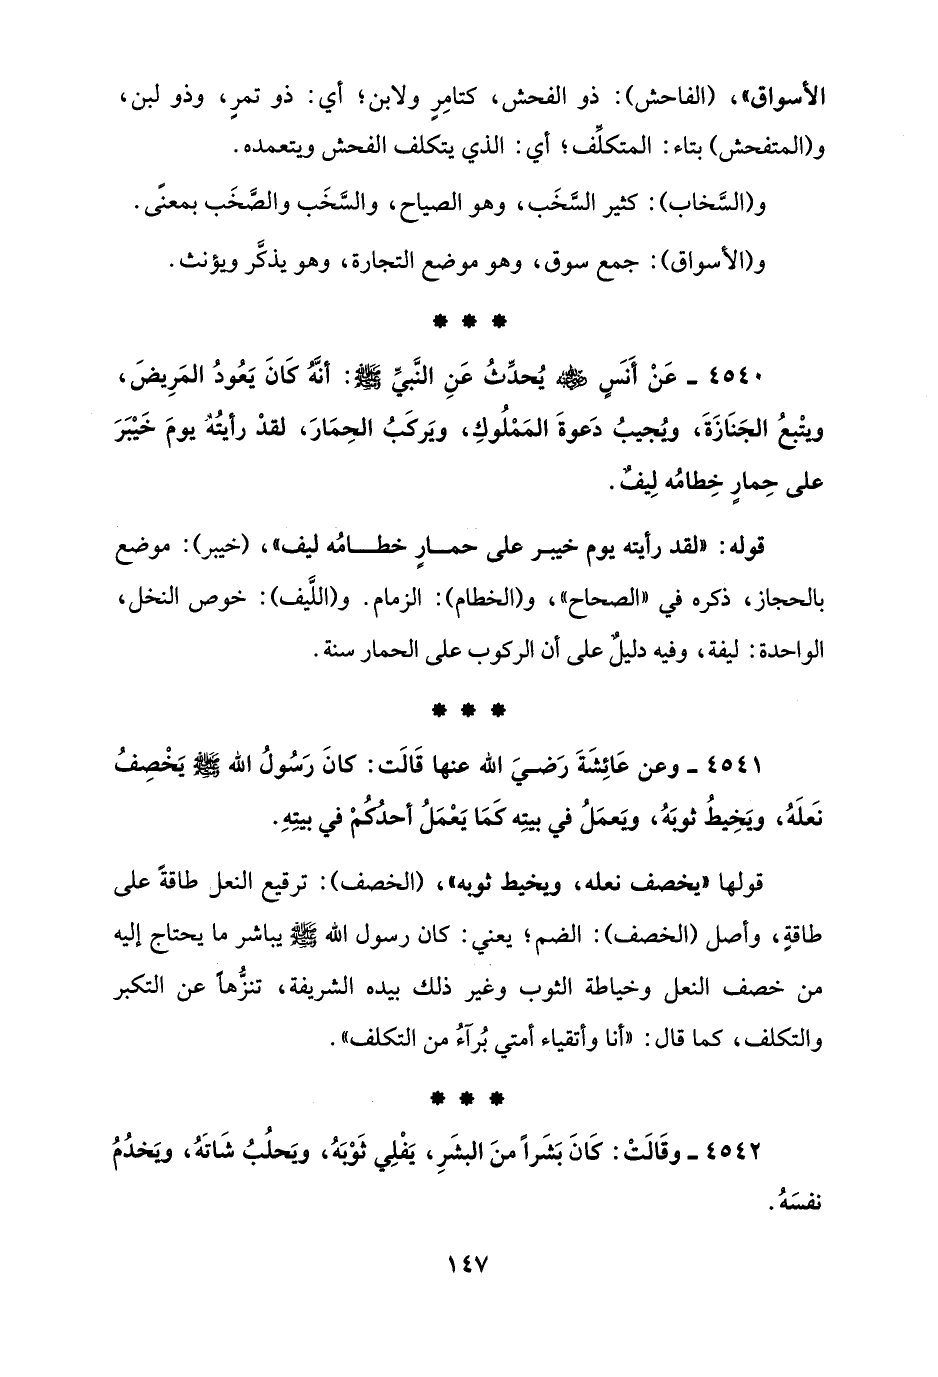 الأسواق»، (الفاحش): ذو الفحش، كتامِرٍ ولابن؛ أي: ذو تمرٍ، وذو لبن،
و(المتفحش) بتاء: المتكلِّف؛ أي: الذي يتكلف الفحش ويتعمده.
و(السَّخاب): كثير السَّخَب، وهو الصياح، والسَّخَب والصَّخَب بمعنًى.
و(الأسواق): جمع سوق، وهو موضع التجارة، وهو يذكَّر ويؤنث.
* * *
٤٥٤٠ ـ عَنْ أَنَسٍ رضي الله عنه يُحدِّثُ عَنِ النَّبيِّ ﷺ: أنَّهُ كَانَ يَعُودُ المَرِيضَ،
ويتْبعُ الجَنَازَةَ، ويُجيبُ دَعوةَ المَمْلُوكِ، ويَركَبُ الحِمَارَ، لقدْ رأيتُهُ يومَ خَيْبَرَ
على حِمارٍ خِطامُه لِيفٌ.
قوله: «لقد رأيته يوم خيبر على حمارٍ خطامُه ليف»، (خيبر): موضع
بالحجاز، ذكره في «الصحاح»، و(الخطام): الزمام. و(اللَّيف): خوص النخل،
الواحدة: ليفة، وفيه دليلٌ على أن الركوب على الحمار سنة.
* * *
٤٥٤١ ـ وعن عَائِشَةَ رَضيَ الله عنها قَالَت: كانَ رَسُولُ الله ﷺ يَخْصِفُ
نَعلَهُ، ويَخِيطُ ثوبَهُ، ويَعمَلُ في بيتِه كَمَا يَعْمَلُ أحدُكُمْ في بيتِهِ.
قولها «يخصف نعله، ويخيط ثوبه»، (الخصف): ترقيع النعل طاقةً على
طاقةٍ، وأصل (الخصف): الضم؛ يعني: كان رسول الله ﷺ يباشر ما يحتاج إليه
من خصف النعل وخياطة الثوب وغير ذلك بيده الشريفة، تنزُّهاً عن التكبر
والتكلف، كما قال: «أنا وأتقياء أمتي بُرآءُ من التكلف».
* * *
٤٥٤٢ ـ وقَالَتْ: كَانَ بَشَراً منَ البشَرِ، يَفْلِي ثَوْبَهُ، ويَحلُبُ شَاتَهُ، ويَخدُمُ
نفسَهُ.
١٤٧